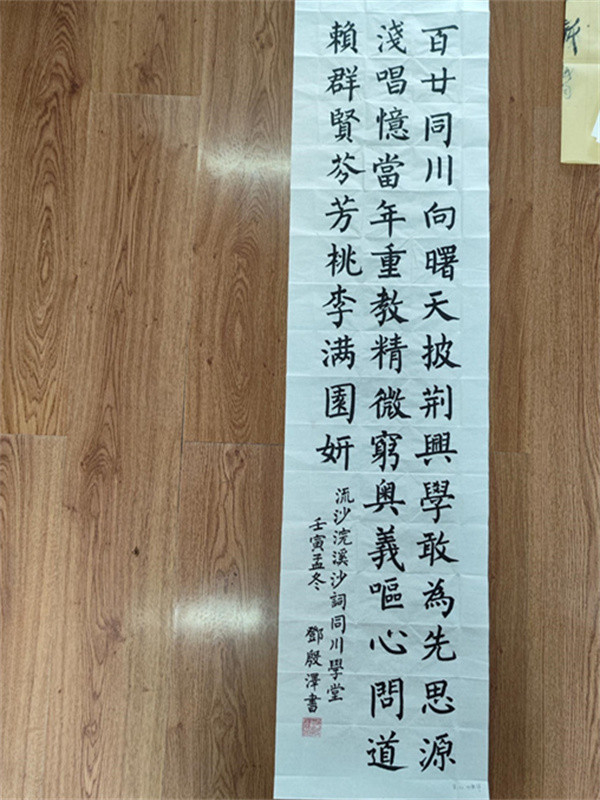 百廿同川向曙天披荆興學敢為先思源
淺唱憶當年重教精微窮奥義嘔心問道
賴群賢芬芳桃李满園妍
流沙浣溪沙詞同川學堂
壬寅孟冬 鄧殷澤書